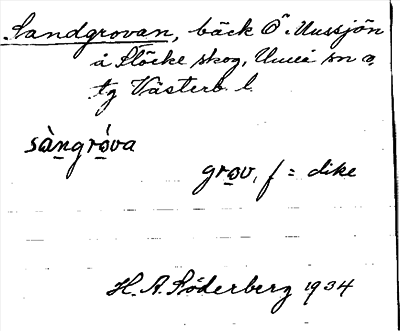 Sandgrovan, bäck Ö. Mussjön
å Flöcke skog, Umeå sn o.
tg Västerb. l.
sàngróva
grov, f = dike
H. A. Söderberg 1934